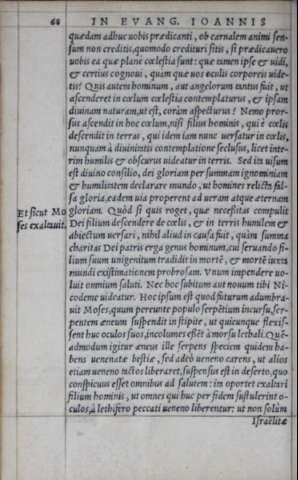 66 IN EVANG. IOANNIS
quædam adhuc uobis prædicanti, ob carnalem animi sen-
sum non creditis, quomodo credituri sitis, si prædicauero
uobis ea quæ planè cœlestia sunt: quæ tamen ipse & uidi,
& certius cognoui, quàm quæ uos oculis corporeis uide-
tis? Quis autem hominum, aut angelorum tantus fuit, ut
ascenderet in cœlum cœlestia contemplaturus, & ipsam
diuinam naturam, ut est, coràm aspecturus? Nemo pror-
sus ascendit in hoc cœlum, nisi filius hominis, qui è cœlis
descendit in terras, qui idem iam nunc uersatur in cœlis,
nunquam à diuinitatis contemplatione seclusus, licet inte-
rim humilis & obscurus uideatur in terris. Sed ita uisum
est diuino consilio, dei gloriam per summam ignominiam
& humilitatem declarare mundo, ut homines relicta fal-
sa gloria, eadem uia properent ad ueram atque æternam
Et sicut Mo
ses exaltauit.
gloriam. Quòd si quis roget, quæ necesitas compulit
Dei filium descendere de cœlis, & in terris humilem &
abiectum uersari, nihil aliud in causa fuit, quàm summa
charitas Dei patris erga genus hominum, cui seruando fi-
lium suum unigenitum tradidit in mortē, & mortē iuxta
mundi existimationem probrosam. Vnum impendere uo-
luit omnium saluti. Nec hoc subitum aut nouum tibi Ni-
codeme uideatur. Hoc ipsum est quod futurum adumbra-
uit Moses, quum pereunte populo serpētium incursu, ser-
pentem æneum suspendit in stipite, ut quicunque flexis-
sent huc oculos suos, incolumes essēt à morsu lethali. Quē-
admodum igitur æneus ille serpens speciem quidem ha-
bens uenenatæ bestiæ, sed adeò ueneno carens, ut alios
etiam ueneno tactos liberaret, suspensus est in deserto, quo
conspicuus esset omnibus ad salutem: ita oportet exaltari
filium hominis, ut omnes qui huc per fidem sustulerint o-
culos, à lethifero peccati ueneno liberentur: ut non solùm
Israëlitæ